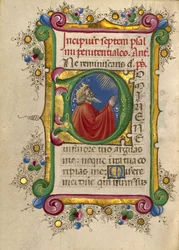 Incipiunt septem psal
mi penitentiales. Añ.
Ne reminiscaris d. ps.
D OMINE NE
in furore tuo arguas
me: neque in ira tua co
ripias me. Misere
re mei dñe qm̄ infirmus